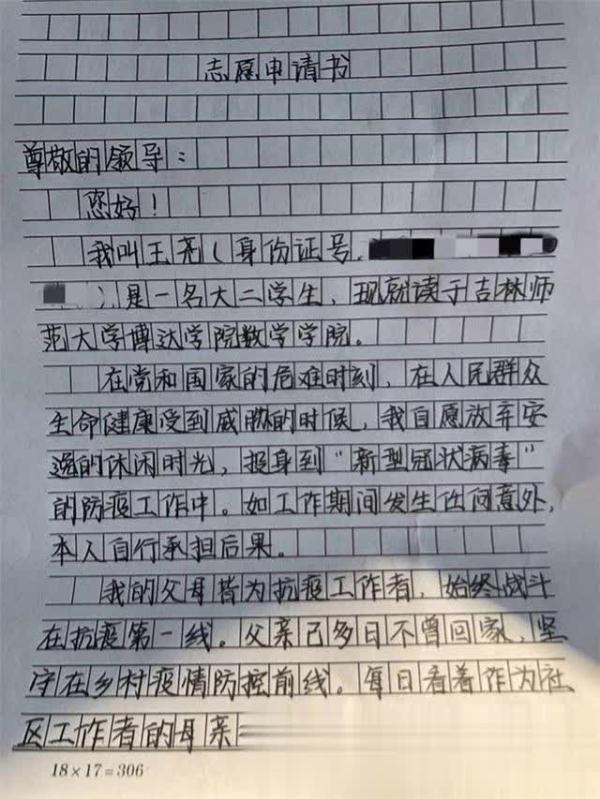 志愿申请书
尊敬的领导：
您好！
我叫王尧（身份证号
），是一名大二学生，现就读于吉林师
范大学博达学院数学学院。
在党和国家的危难时刻，在人民群众
生命健康受到威胁的时候，我自愿放弃安
逸的休闲时光，投身到“新型冠状病毒”
的防疫工作中。如工作期间发生任何意外，
本人自行承担后果。
我的父母皆为抗疫工作者，始终战斗
在抗疫第一线。父亲已多日不曾回家，坚
守在乡村疫情防控前线。每日看着作为社
区工作者的母亲
18×17=306